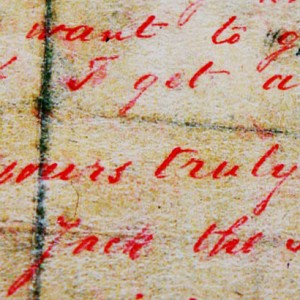 want to g
I get a
yours truly
Jack the